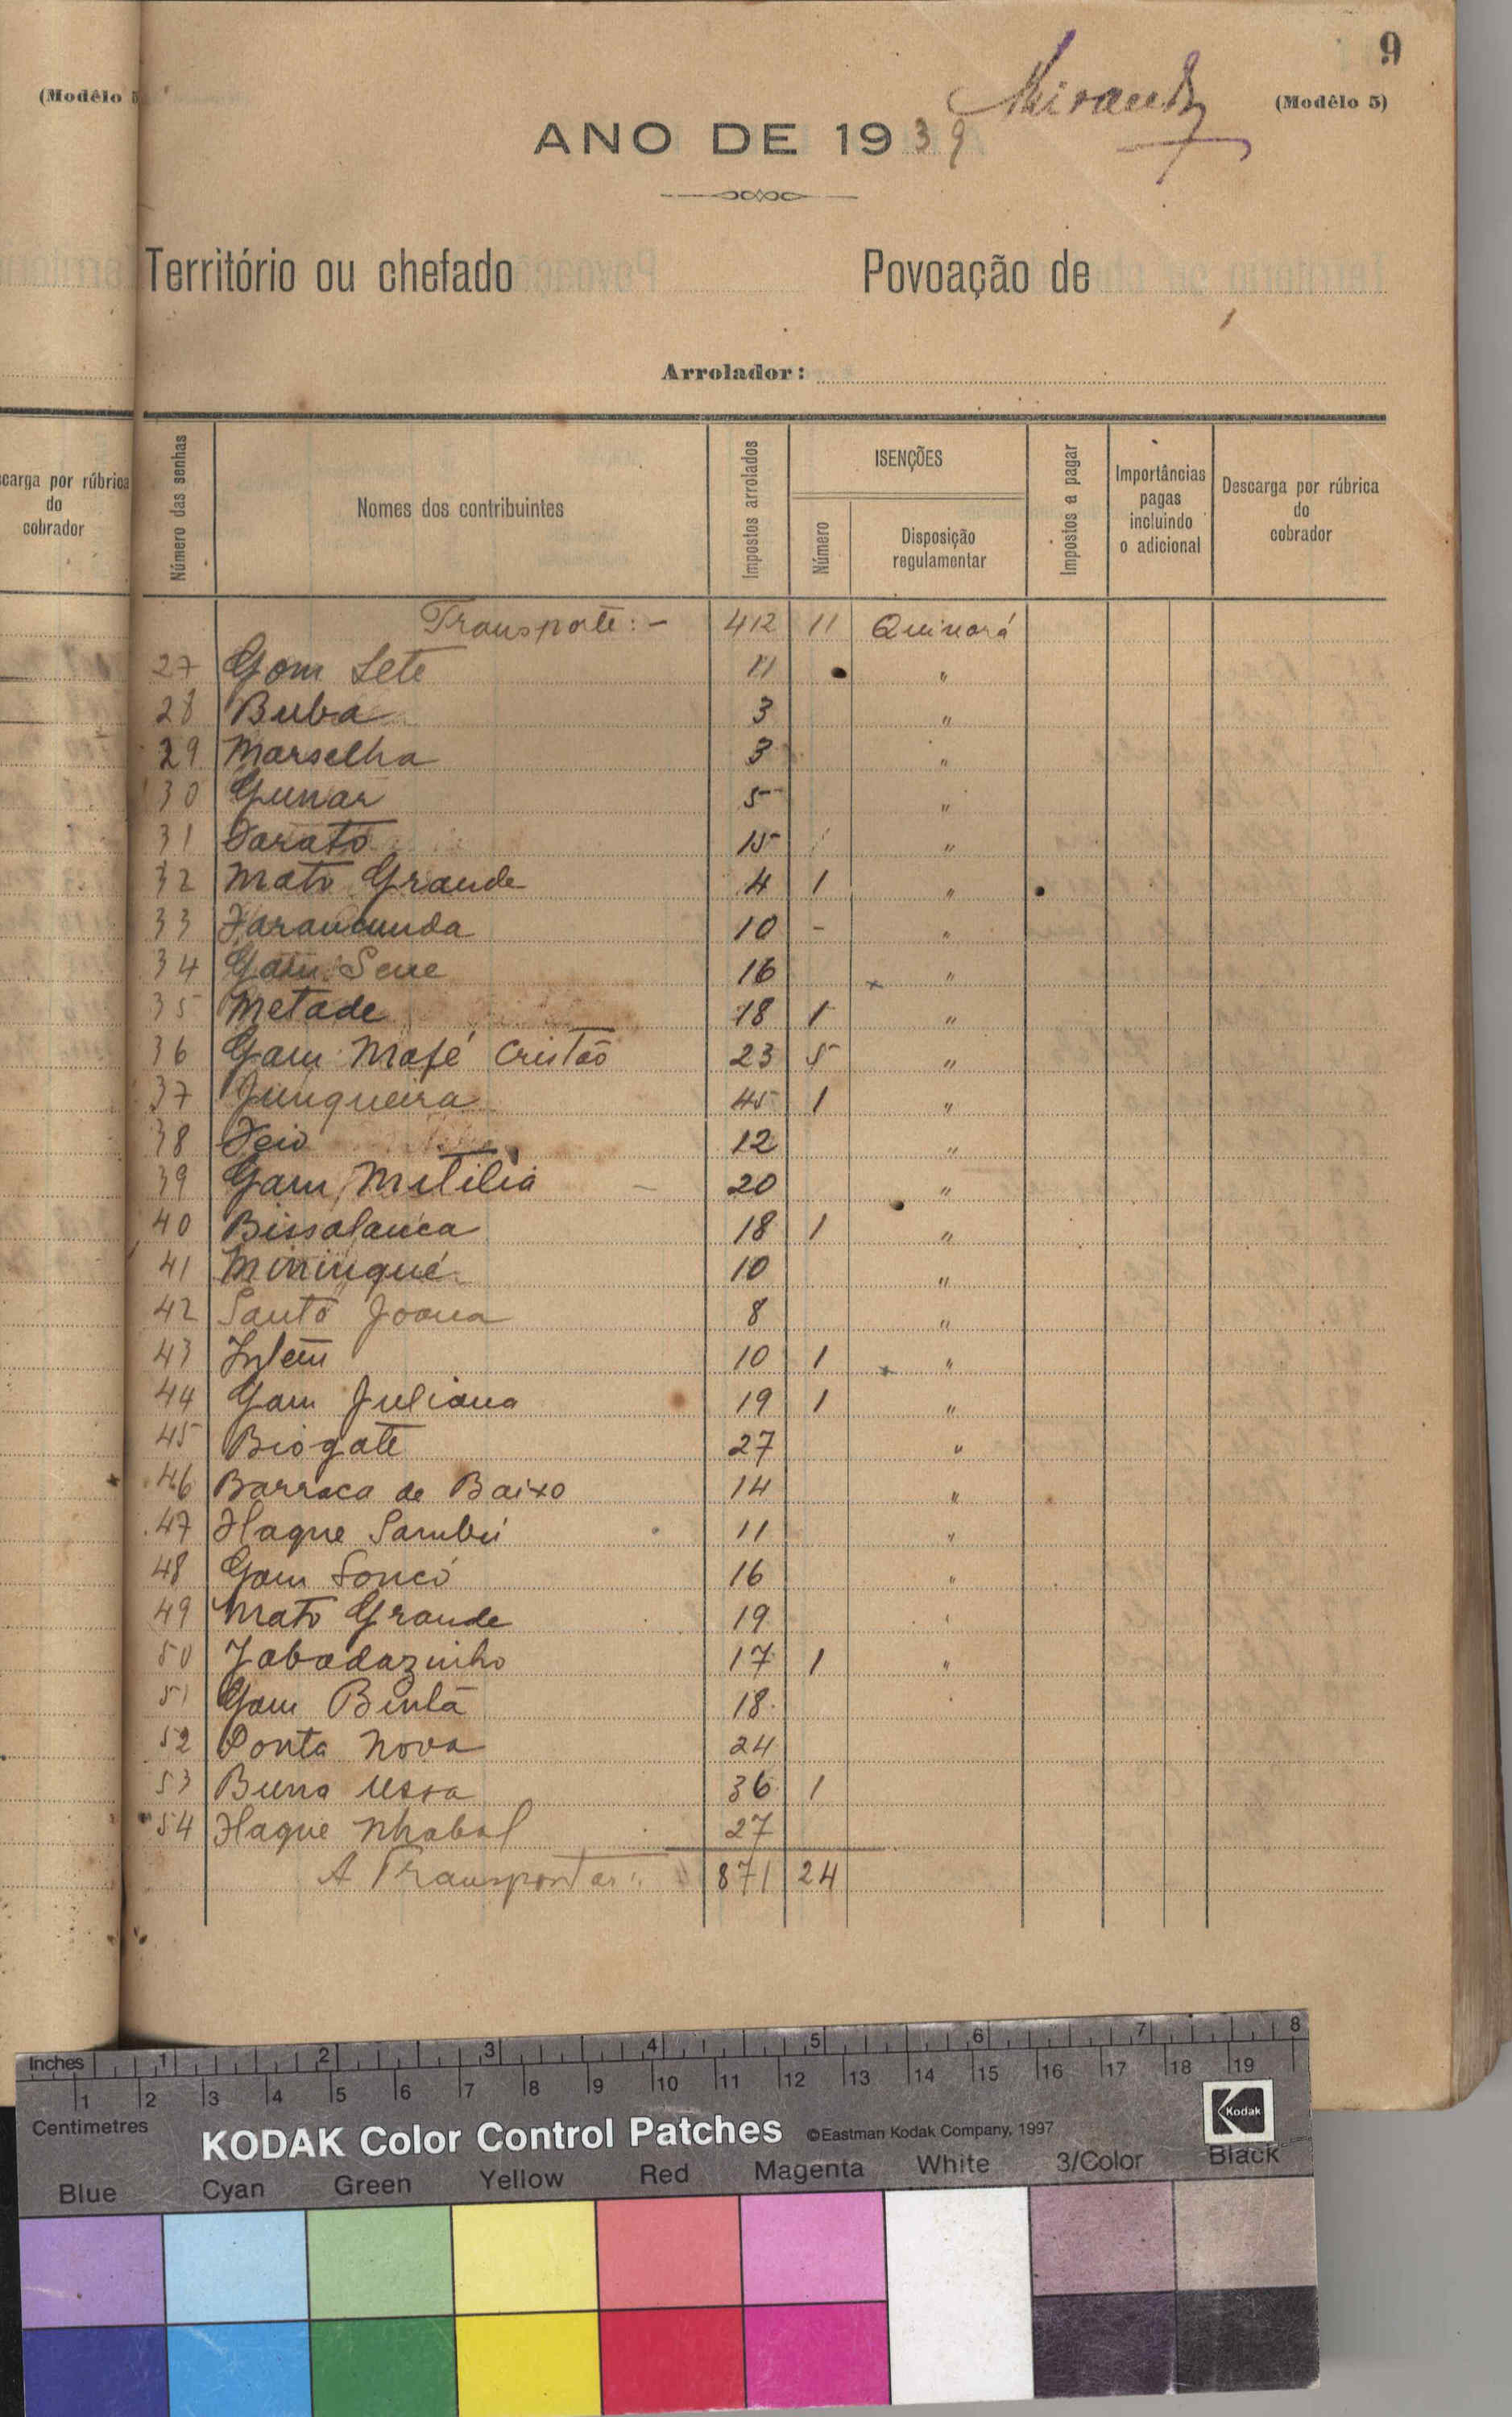 9
(Modêlo 5
Miranda
(Modêlo 5)
ANO DE 1939
Território ou chefado
Povoação de
Arrolador:
scarga por rúbrica
do
cobrador
Número das senhas
Nomes dos contribuintes
Impostos arrolados
ISENÇÕES
Número
Disposição
regulamentar
Impostos a pagar
Importâncias
pagas
incluindo
o adicional
Descarga por rúbrica
do
cobrador
Transporte: - 412 11 Quinará
27 Gam Lete 11 "
28 Buba 3 "
29 Marselha 3 "
30 Gunar 5 "
31 Farato 15 "
32 Mato Grande 4 1 "
33 Farancunda 10 - "
34 Gam Sene 16 "
35 Metade 18 1 "
36 Gam Mafé Cristão 23 5 "
37 Junqueira 45 1 "
38 Feio 12 "
39 Gam Mitilia 20 "
40 Bissalanca 18 1 "
41 Mininqué 10 "
42 Santo Joana 8 "
43 10 1 "
44 Gam Juliana 19 1 "
45 Biogate 27 "
46 Barraca de Baixo 14 "
47 Flaque Sambú 11 "
48 Gam Soncó 16 "
49 Mato Grande 19 "
50 Jabadazinho 17 1 "
51 Gam Bintã 18
52 Ponta Nova 24
53 Buna 36 1
54 Flaque Nhabal 27
A Transportar: 871 24
Inches 1 2 3 4 5 6 7 8
1 2 3 4 5 6 7 8 9 10 11 12 13 14 15 16 17 18 19
Centimetres
KODAK Color Control Patches ©Eastman Kodak Company, 1997
Kodak
Blue Cyan Green Yellow Red Magenta White 3/Color Black